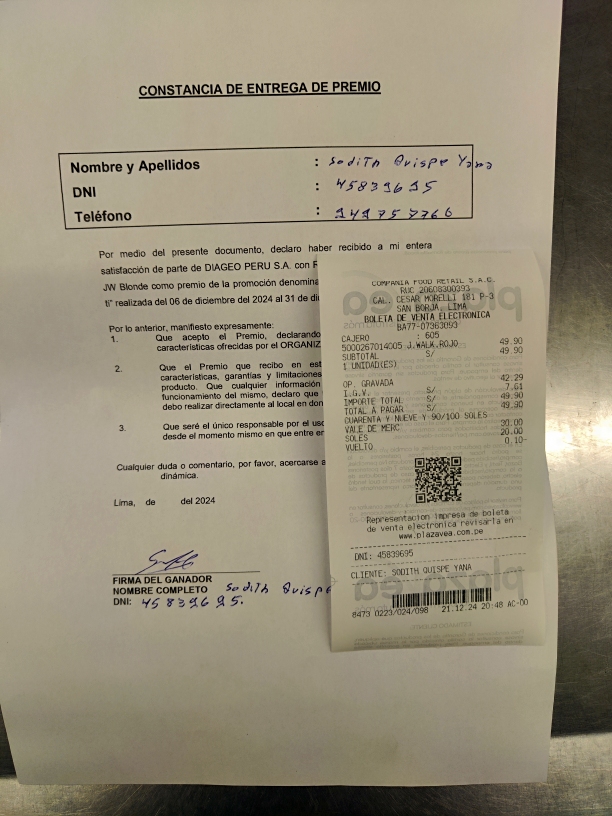 CONSTANCIA DE ENTREGA DE PREMIO
Nombre y Apellidos : Sodith Quispe Yana
DNI : 45839695
Teléfono : 949757766
Por medio del presente documento, declaro haber recibido a mi entera
satisfacción de parte de DIAGEO PERU S.A. con
JW Blonde como premio de la promoción
ti" realizada del 06 de diciembre del 2024 al 31 de
Por lo anterior, manifiesto expresamente:
1. Que acepto el Premio, declarando
características ofrecidas por el
2. Que el Premio que recibo en
características, garantías y limitaciones
producto. Que cualquier información
funcionamiento del mismo, declaro que
debo realizar directamente al local en
3. Que seré el único responsable por el
desde el momento mismo en que entre
Cualquier duda o comentario, por favor, acercarse a
dinámica.
Lima, de del 2024
FIRMA DEL GANADOR
NOMBRE COMPLETO Sodith Quispe
DNI: 45839695.
COMPANIA FOOD RETAIL S.A.C.
RUC 20608300393
CAL. CESAR MORELLI 181 P-3
SAN BORJA, LIMA
BOLETA DE VENTA ELECTRONICA
BA77-07363093
CAJERO : 605
5000267014005 J.WALK.ROJO 49.90
SUBTOTAL S/ 49.90
1 UNIDAD(ES)
OP. GRAVADA 42.29
I.G.V. S/ 7.61
IMPORTE TOTAL S/ 49.90
TOTAL A PAGAR S/ 49.90
CUARENTA Y NUEVE Y 90/100 SOLES
VALE DE MERC 30.00
SOLES 20.00
VUELTO 0.10-
Representacion impresa de boleta
de venta electronica revisarla en
www.plazavea.com.pe
DNI: 45839695
CLIENTE: SODITH QUISPE YANA
8473 0223/024/098 21.12.24 20:48 AC-00